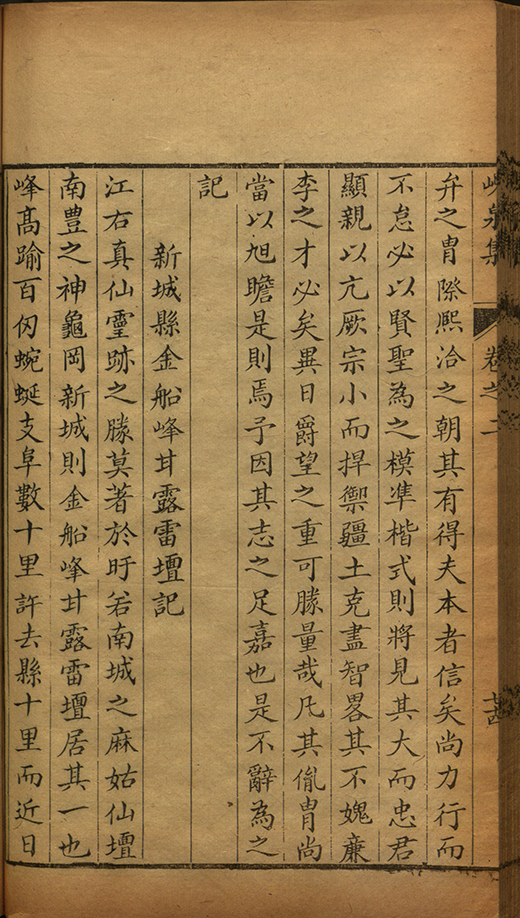 峴泉集 卷之二 十四
弁之胄際熙洽之朝其有得夫本者信矣尚力行而
不怠必以賢聖為之模準楷式則將見其大而忠君
顯親以亢厥宗小而捍禦疆土克盡智畧其不媿亷
李之才必矣異日爵望之重可勝量哉凡其胤胄尚
當以旭瞻是則焉予因其志之足嘉也是不辭為之
記
新城縣金船峰甘露雷壇記
江右真仙霊跡之勝莫著於盱若南城之麻姑仙壇
南豊之神龜岡新城則金船峰甘露雷壇居其一也
峰髙踰百仭蜿蜒支阜數十里許去縣十里而近日